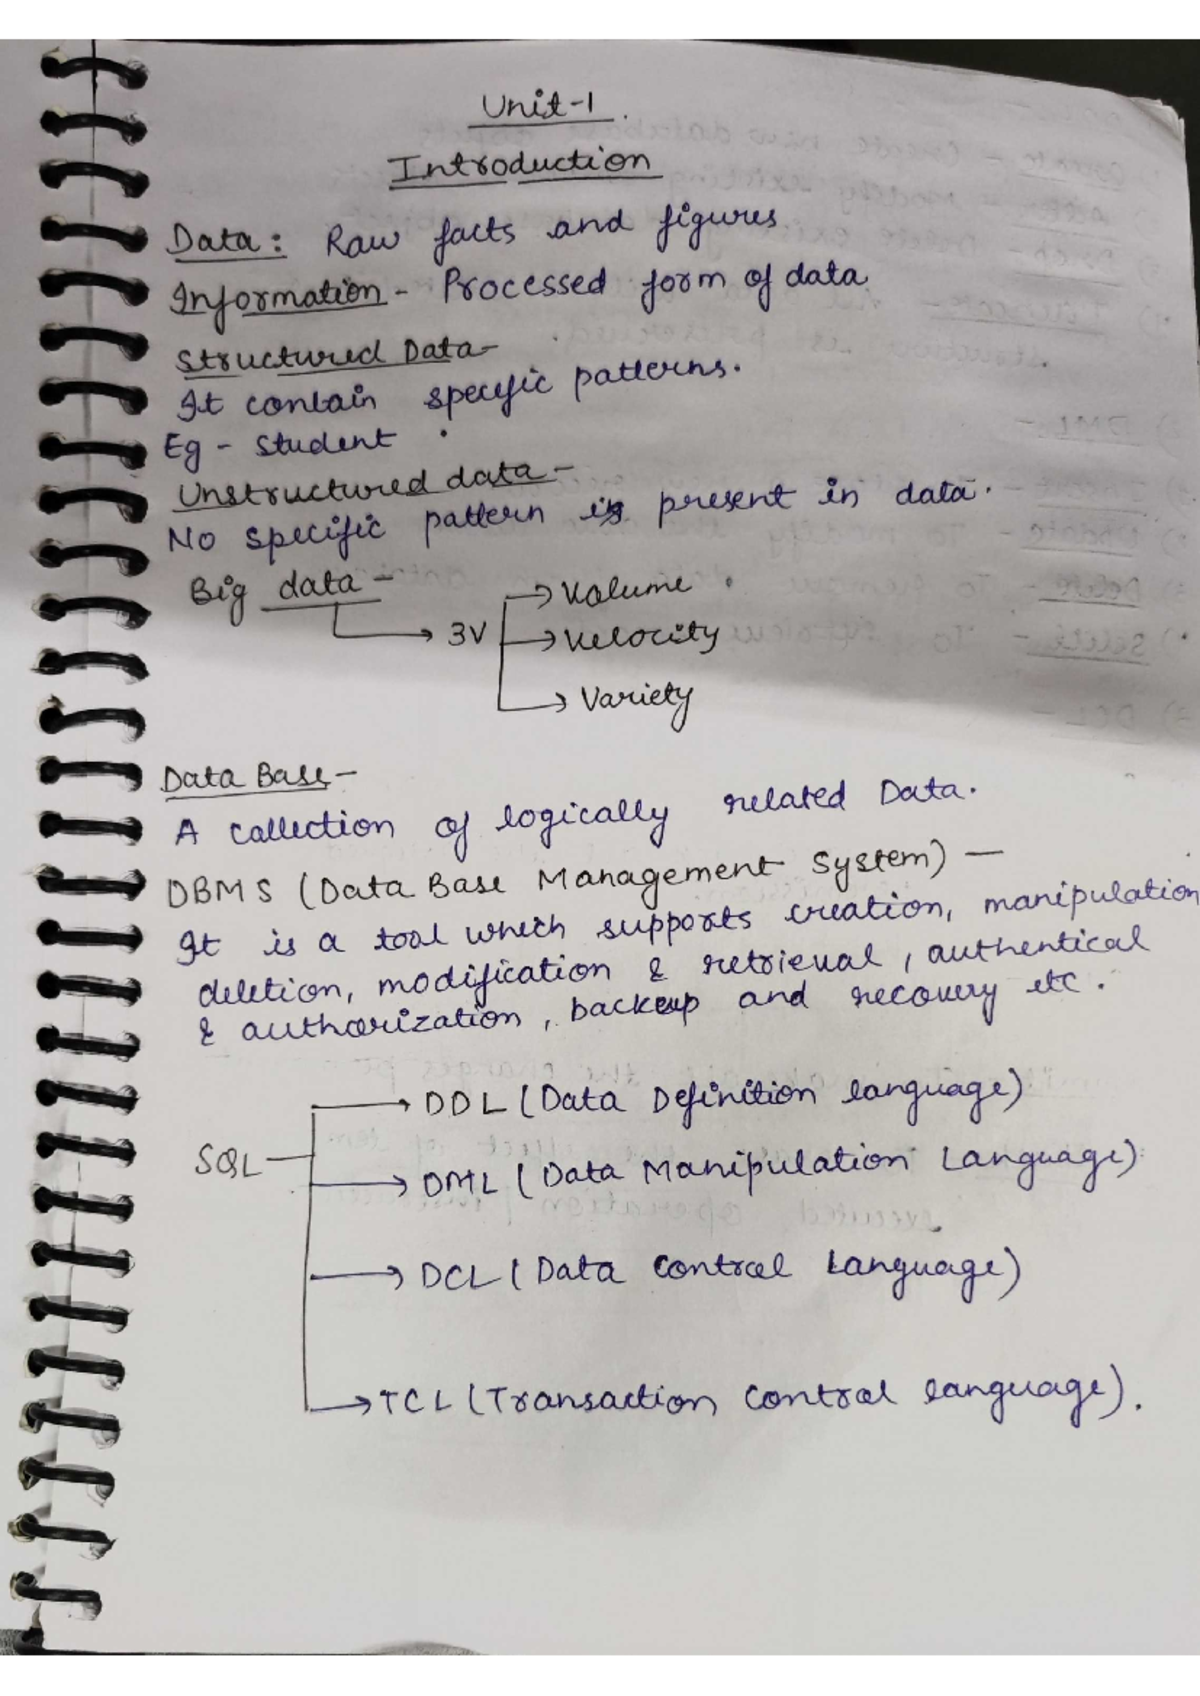 Unit-1.
Introduction
Data: Raw facts and figures
Information - Processed form of data
Structured Data-
It contain specific patterns.
Eg - Student
Unstructured data -
No specific pattern is present in data.
Big data -
→ 3V
→ Volume
→ Velocity
→ Variety
Data Base -
A collection of logically related Data.
DBMS (Data Base Management System) —
It is a tool which supports creation, manipulation
deletion, modification & retrieval, authentical
& authorization, backup and recovery etc.
SQL
→ DDL (Data Definition language)
→ DML (Data Manipulation Language)
→ DCL (Data Control Language)
→ TCL (Transaction Control language).